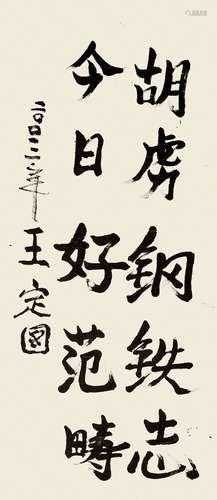 胡虏钢铁志
今日好范畴
二〇〇三年
王定国